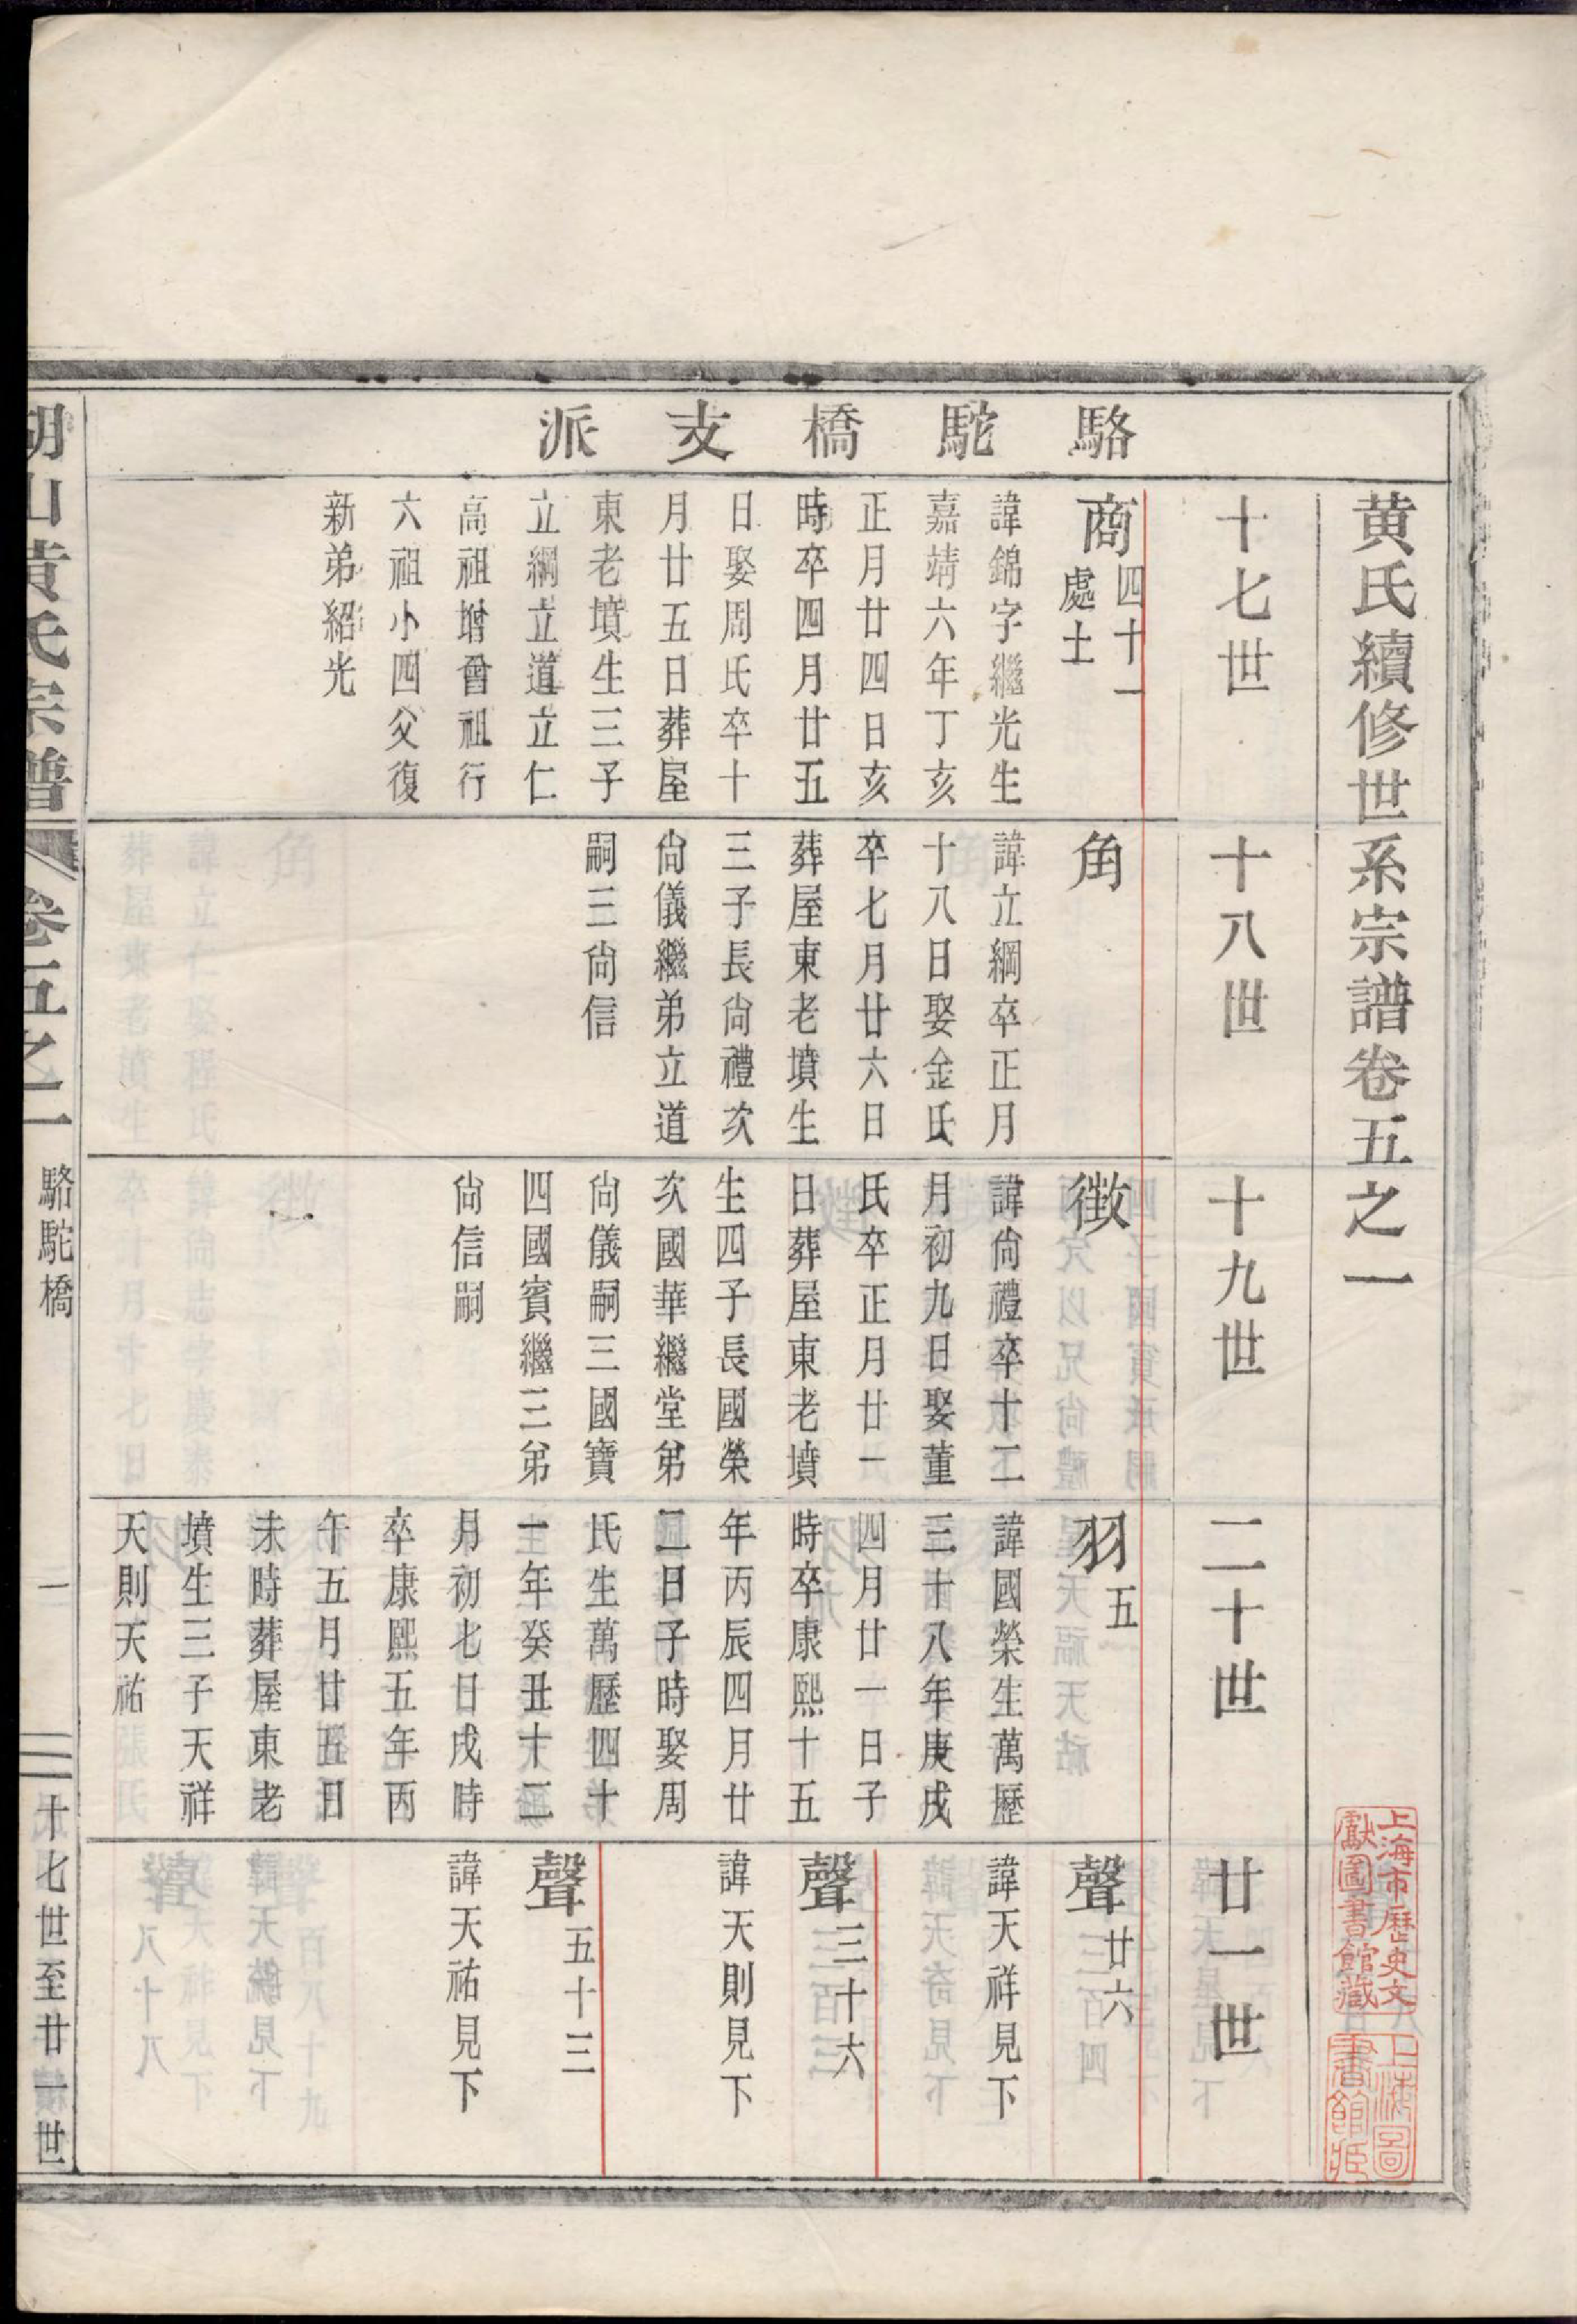 駱駝橋支派
黄氏續修世系宗譜卷五之一
十七世
商四十一處士
諱錦字繼光生
嘉靖六年丁亥
正月廿四日亥
時卒四月廿五
日娶周氏卒十
月廿五日葬屋
東老墳生三子
立綱立道立仁
高祖增曾祖行
六祖小四父復
新弟紹光
十八世
角
諱立綱卒正月
十八日娶金氏
卒七月廿六日
葬屋東老墳生
三子長尙禮次
尙儀繼弟立道
嗣三尙信
十九世
徴
諱尙禮卒十二
月初九日娶董
氏卒正月廿一
日葬屋東老墳
生四子長國榮
次國華繼堂弟
尙儀嗣三國寶
四國賓繼三弟
尙信嗣
二十世
羽五
諱國榮生萬歷
三十八年庚戌
四月廿一日子
時卒康熙十五
年丙辰四月廿
二日子時娶周
氏生萬歷四十
一年癸丑十二
月初七日戌時
卒康熙五年丙
午五月廿五日
未時葬屋東老
墳生三子天祥
天則天祐
廿一世
聲廿六
諱天祥見下
聲三十六
諱天則見下
聲五十三
諱天祐見下
上海市歷史文獻圖書館藏
上海圖書館藏
山黃氏宗譜
卷五之一
駱駝橋
一
十七世至廿一世